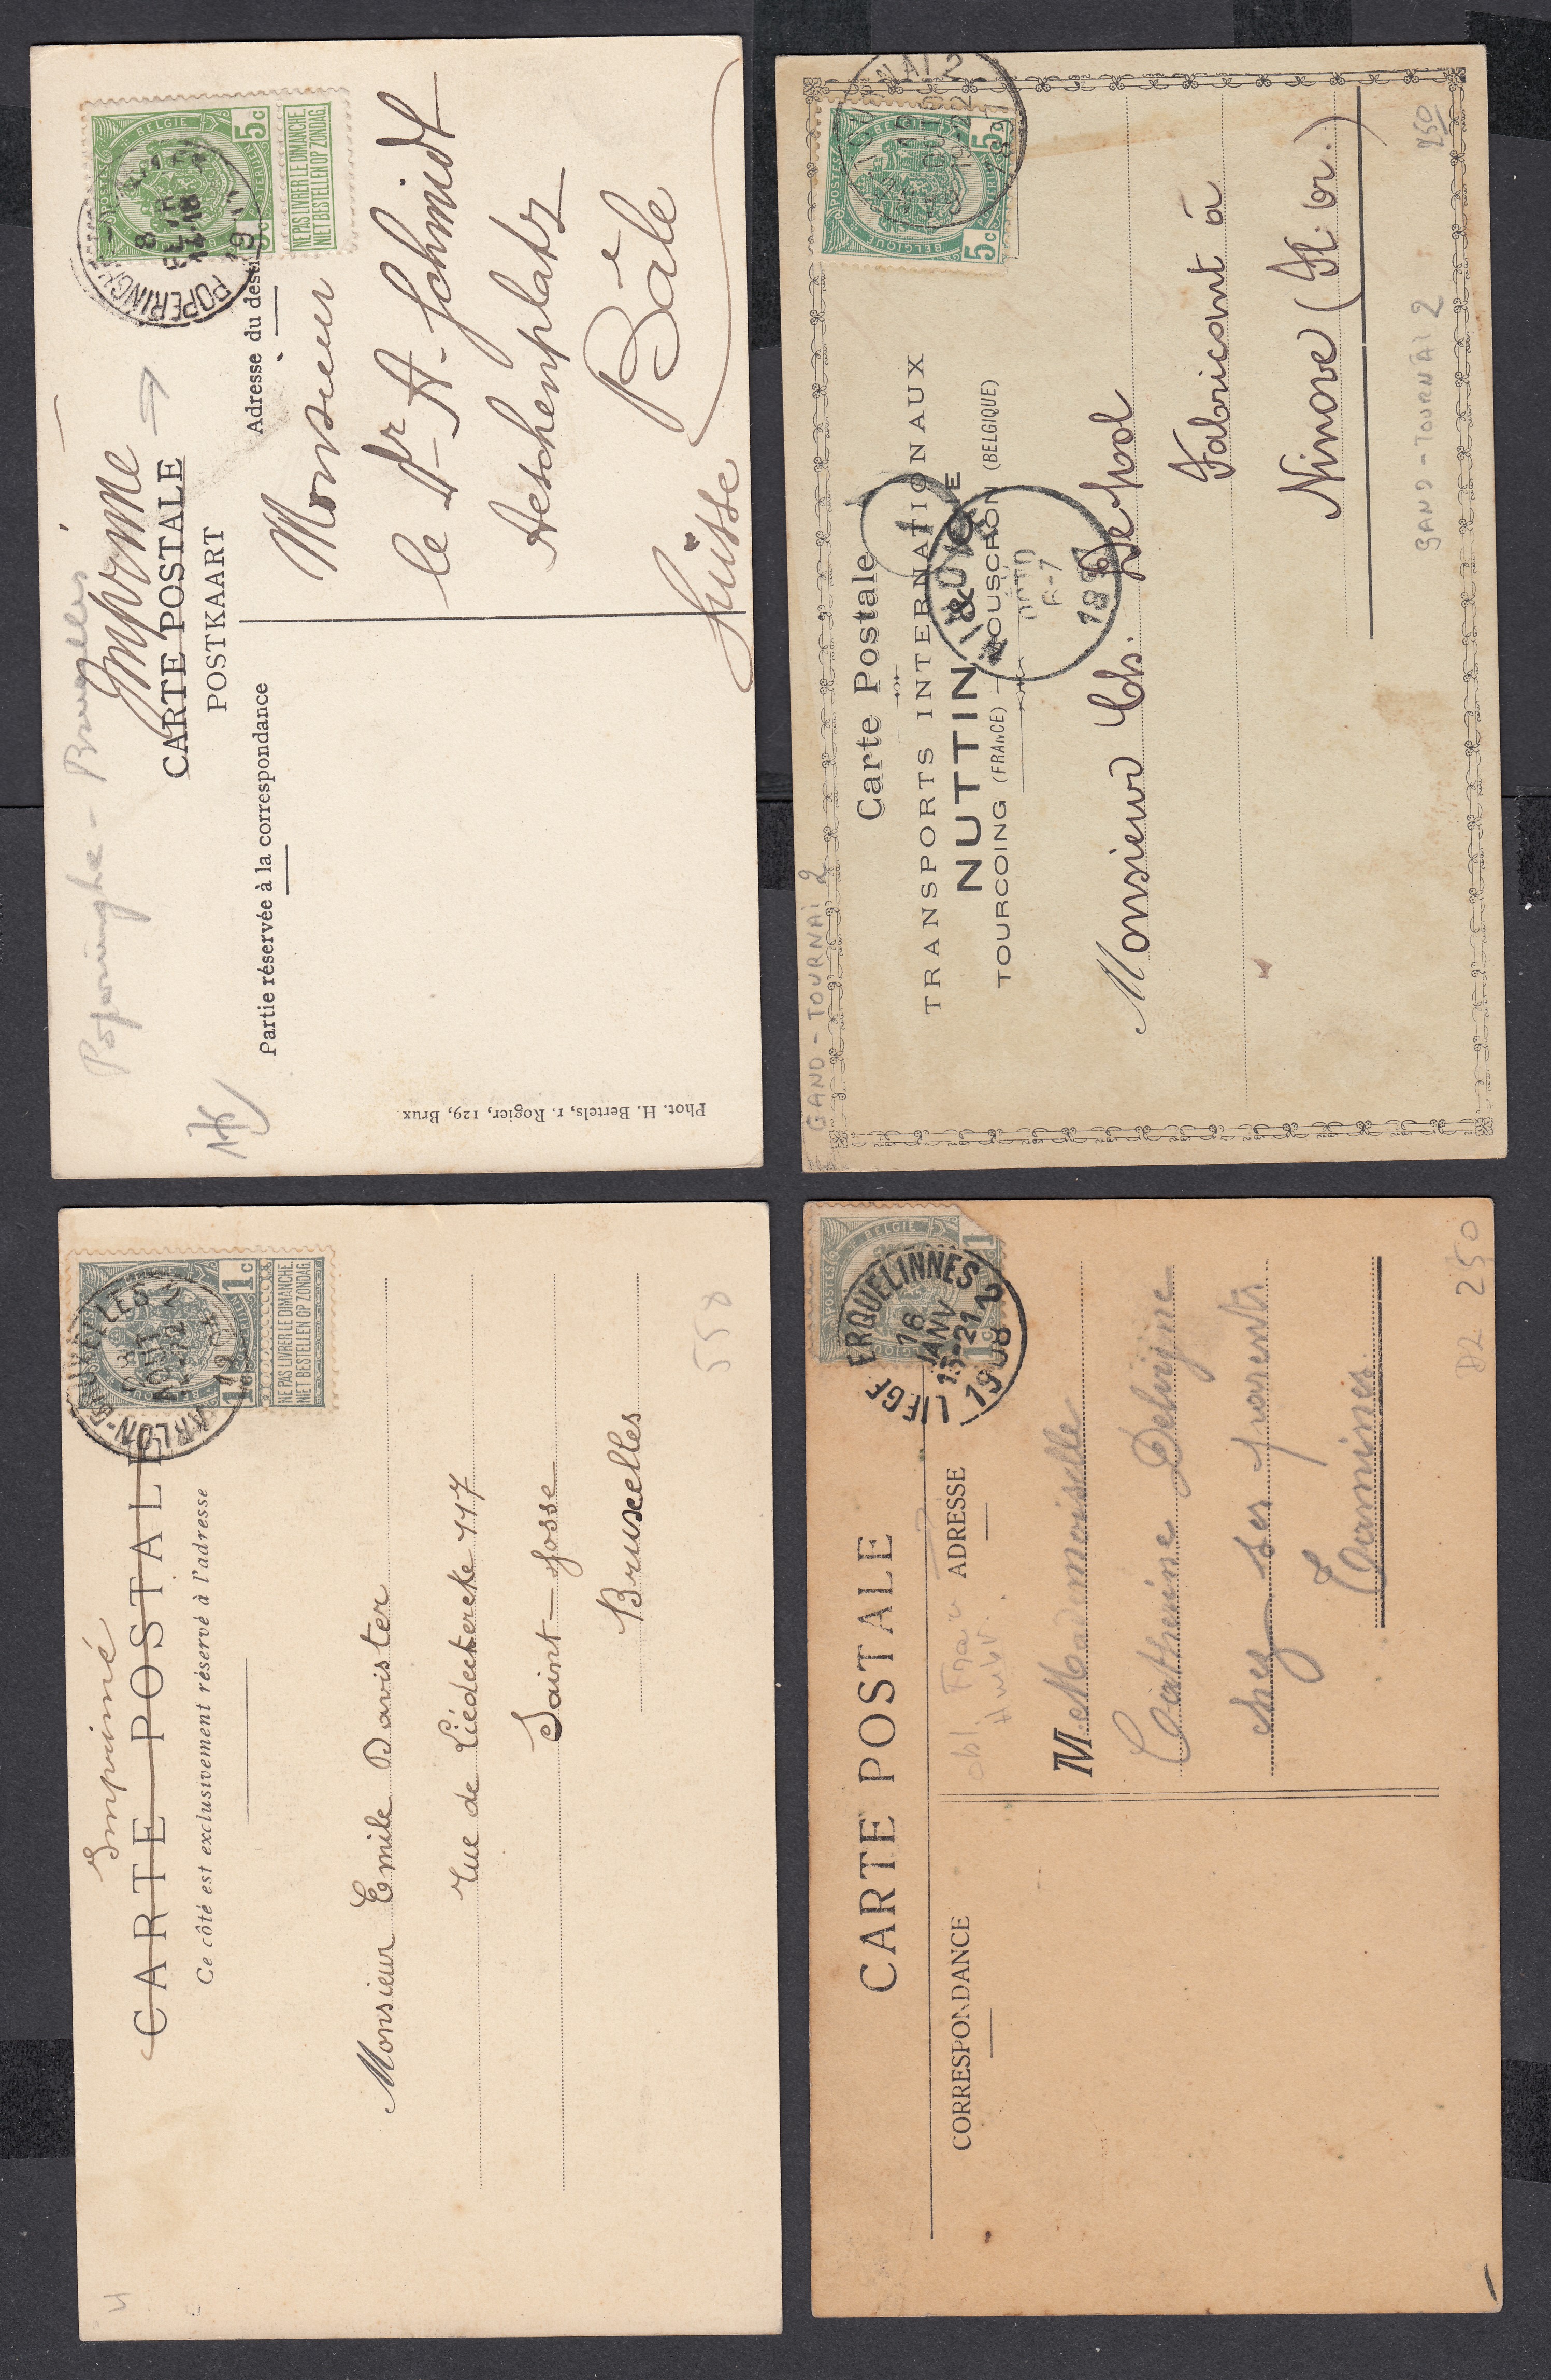 Poperinghe - Bruxelles
Imprimé
CARTE POSTALE
POSTKAART
Partie réservée à la correspondance
Adresse du desti
POSTES
BELGIE
5c
NE PAS LIVRER LE DIMANCHE
NIET BESTELLEN OP ZONDAG
POPERINGHE
8
12-18
Monsieur
le Dr A. Schmidt
Aeschenplatz
Bâle
Suisse
Phot. H. Bertels, r. Rogier, 129, Brux
GAND - TOURNAI 2
Carte Postale
TRANSPORTS INTERNATIONAUX
NUTTIN &
TOURCOING (FRANCE) — MOUSCRON (BELGIQUE)
POSTES
BELGIE
BELGIQUE
5c 5c
NINOVE
6-7
189
Monsieur Ch. Depol
Fabricant à
Ninove (Fl. or.)
GAND - TOURNAI 2
250
Imprimé
CARTE POSTALE
Ce côté est exclusivement réservé à l'adresse
1c
NE PAS LIVRER LE DIMANCHE
NIET BESTELLEN OP ZONDAG
ARLON-BRUXELLES 2
AOUT
Monsieur Emile Davister
rue de Liedekercke 117
Saint-Josse
Bruxelles
550
CARTE POSTALE
CORRESPONDANCE
ADRESSE
POSTES
BELGIE
1
1c
LIEGE ERQUELINNES 2
16
JANV
18-21
1908
M Mademoiselle
Catherine Delvigne
chez ses parents
Tamines
250